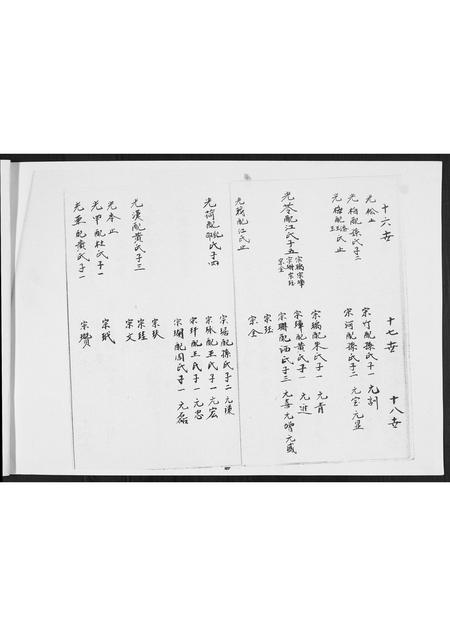 十六世
十七世
十八世
光松止
光柏配孫氏子二
宗竹配孫氏子一
元
宗河配孫氏子二
元宝元星
光
氏止
光苓配江氏子五
宗瑞宗璋
宗珊宗珏
宗金
宗瑞配朱氏子一
元青
宗璋配黄氏子一
元進
宗珊配
氏子三
元喜元增元盛
宗珏
宗金
光
配江氏止
光荷配
氏子四
宗
配孫氏子二
元漢
宗
配王氏子一
元宏
宗
配王氏子一
元忠
宗
配周氏子一
元磊
光漢配黄氏子三
宗玖
宗珪
宗文
光本止
光甲配杜氏子一
宗珉
光亜配黄氏子一
宗瓚